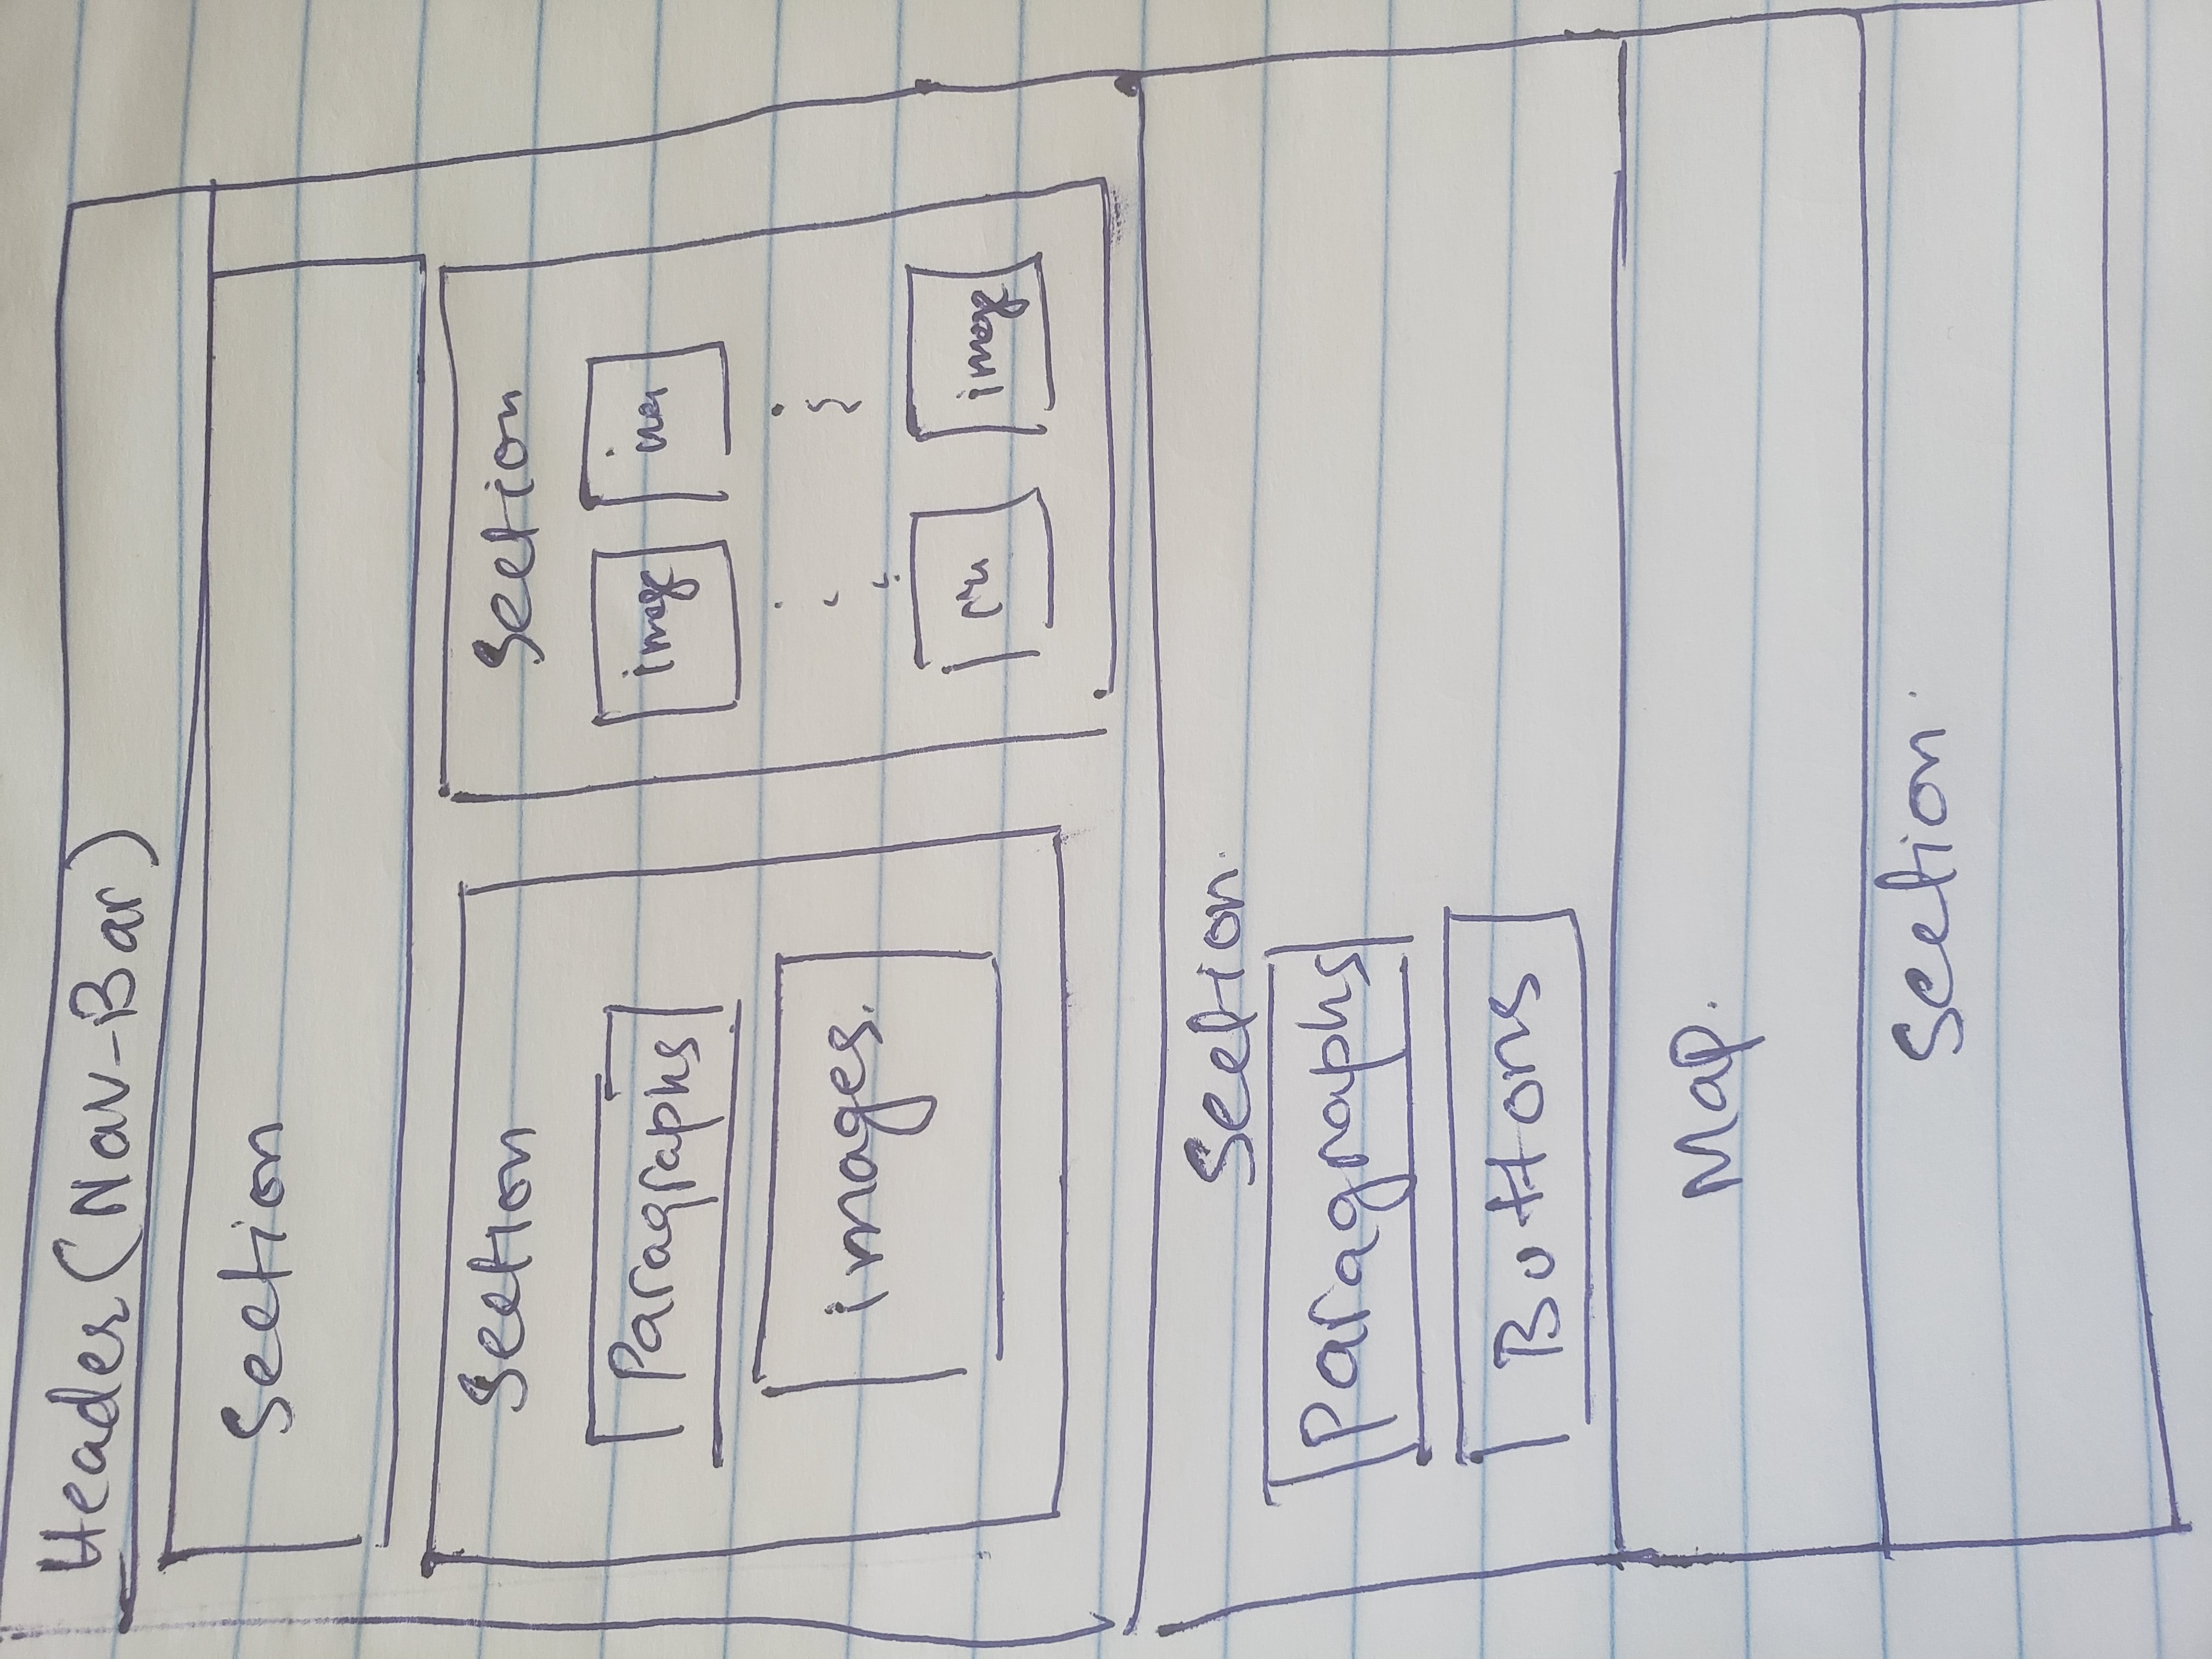 Header (Nav-Bar)
Section
Section
Paragraphs
images.
Section
image
image
Section.
Paragraphs
Buttons
Map.
Section.